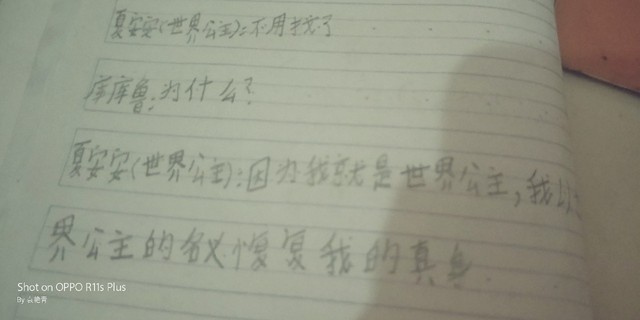 夏安安(世界公主):不用找了
库库鲁:为什么?
夏安安(世界公主):因为我就是世界公主,我以
界公主的名义恢复我的真身
Shot on OPPO R11s Plus
By